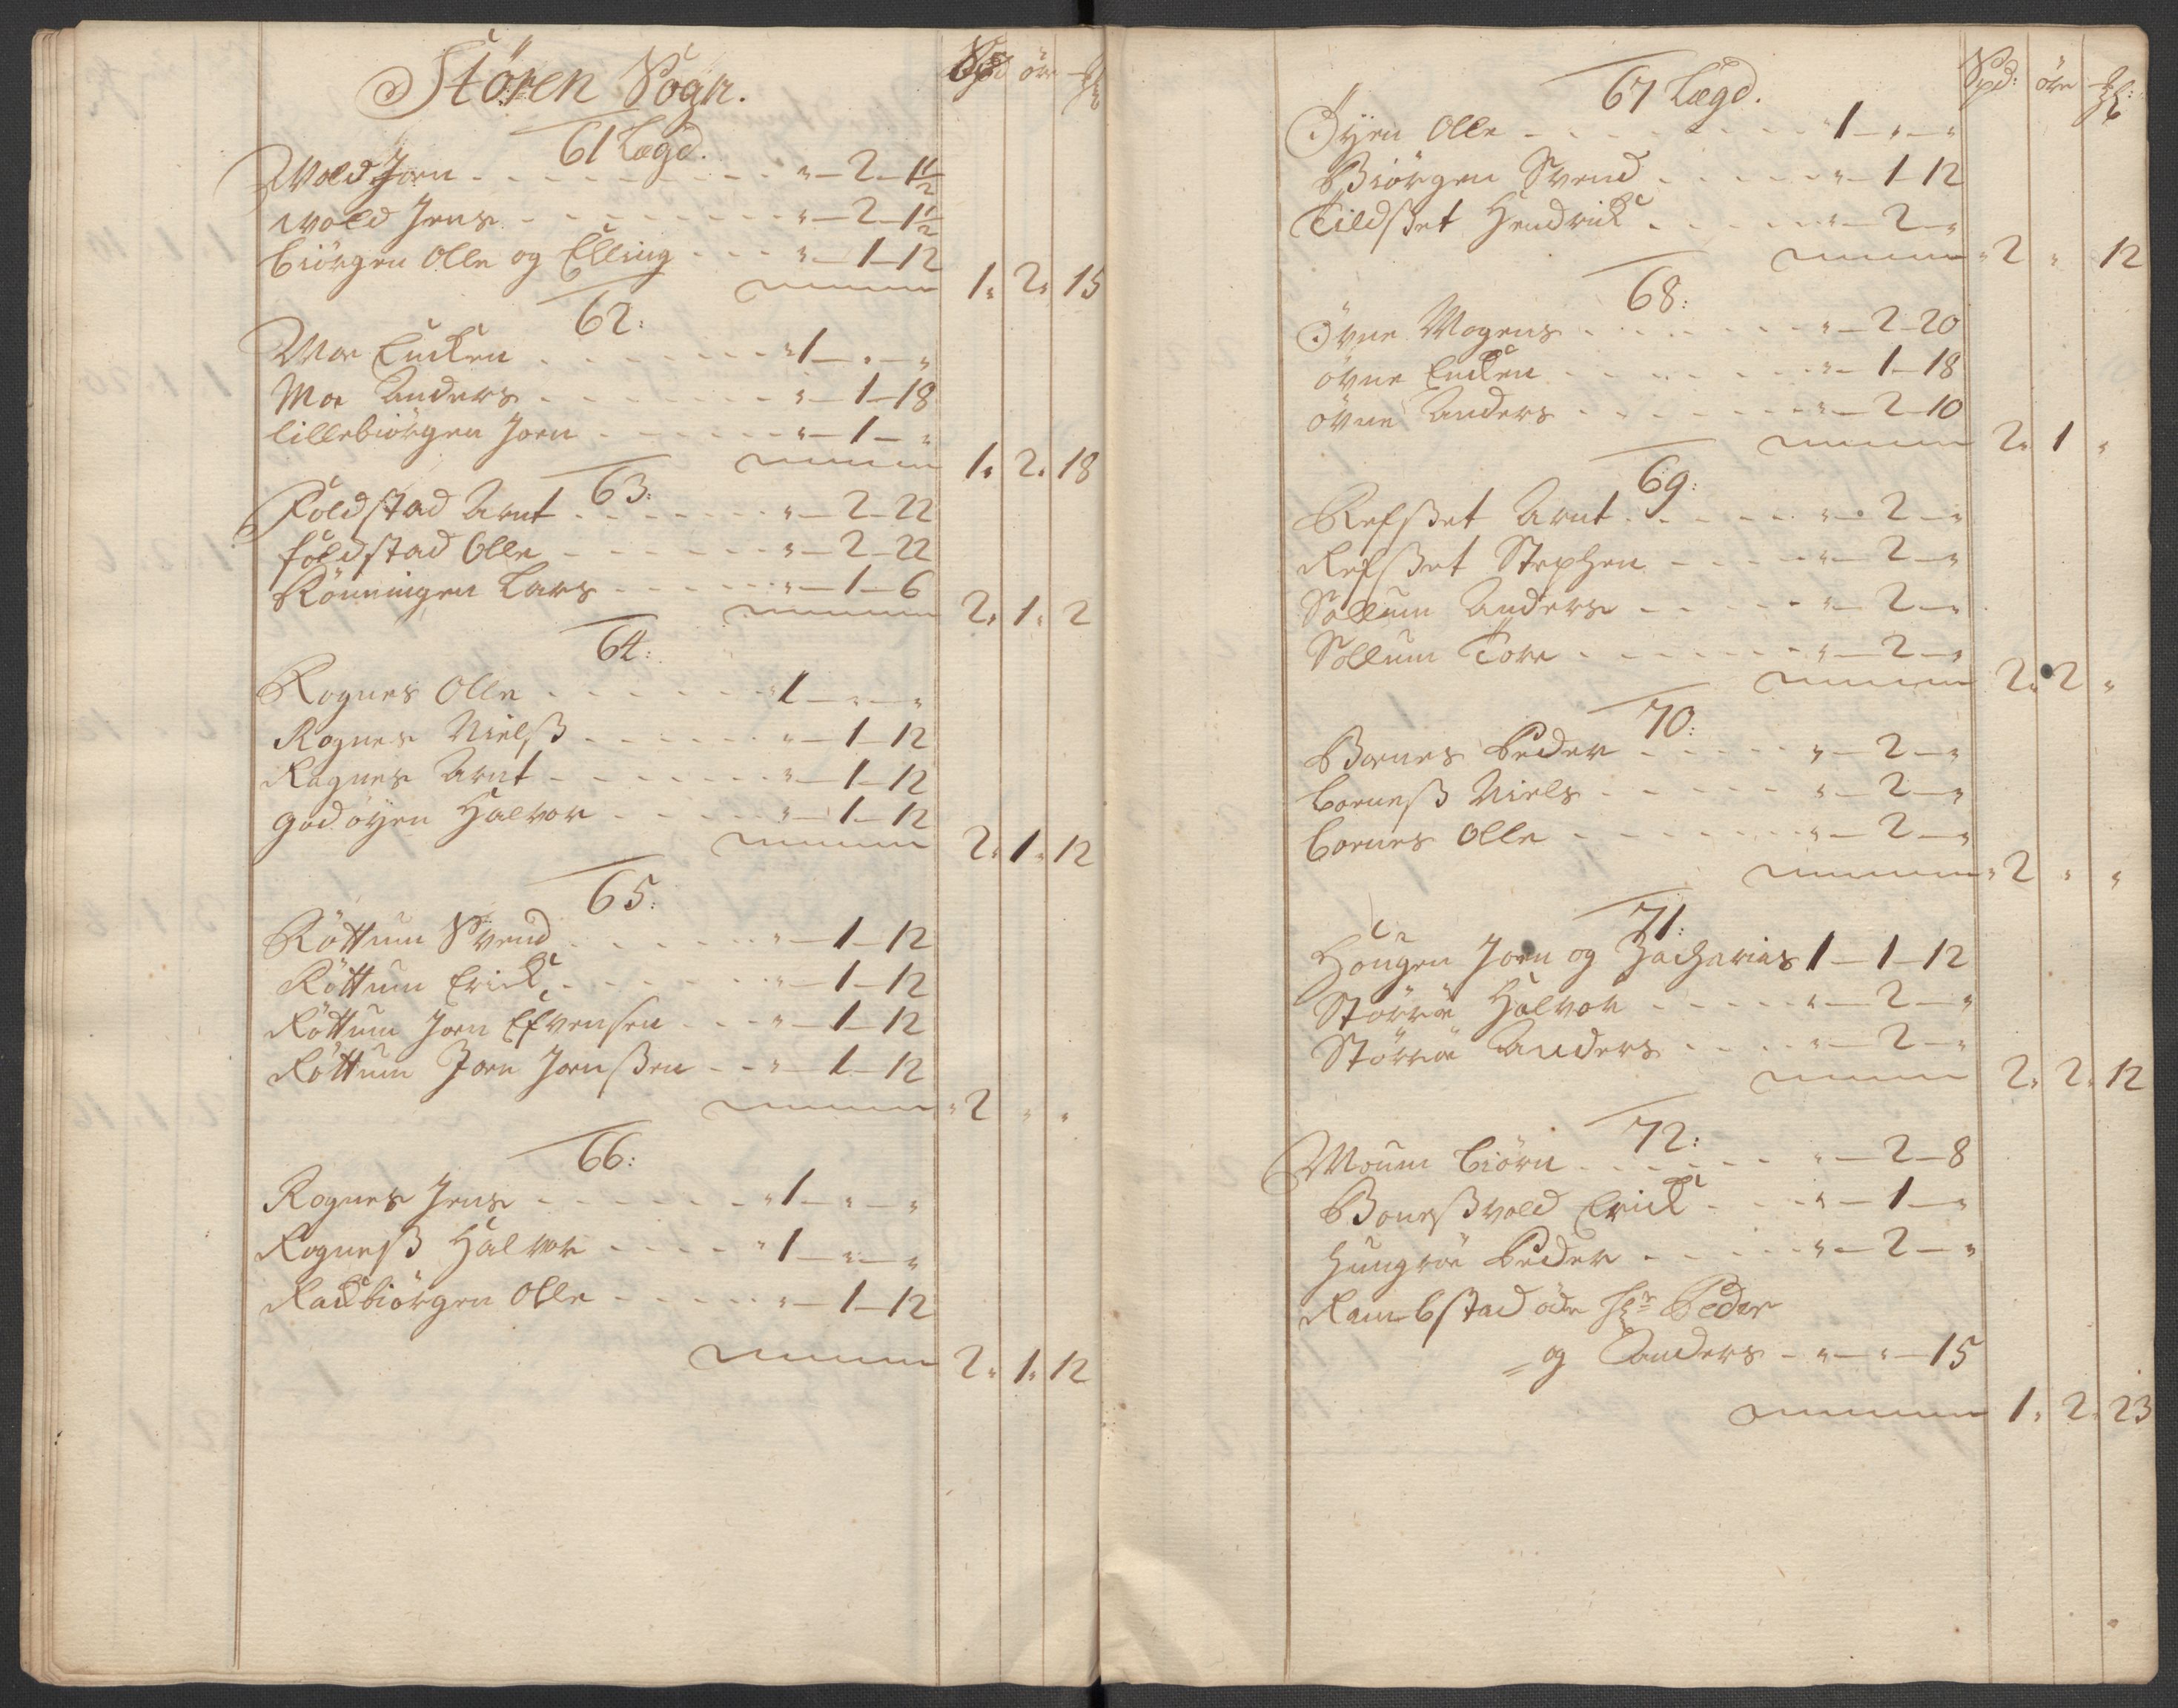 Stören Sogn.
Spd öre
61 Lægd.
Wold Joen - „ - 2 - 1½
wold Jens - „ - 2 - 1½
Biörgen Olle og Elling - „ - 1 - 12
1 „ 2 „ 15
62:
Moe Encken - „ 1 - „ - „
Moe Anders - „ - 1 - 18
lillebiörgen Joen - „ - 1 - „
1 „ 2 „ 18
63:
Foldstad Arnt - „ - 2 - 22
foldstad Olle - „ - 2 - 22
Rönningen Lars - „ - 1 - 6
2 „ 1 „ 2
64:
Rognes Olle - „ 1 - „ - „
Rognes Nielß - „ - 1 - 12
Rognes Arnt - „ - 1 - 12
godöyen Halvor - „ - 1 - 12
2 „ 1 „ 12
65:
Röttum Svend - „ - 1 - 12
Röttum Erick - „ - 1 - 12
Röttum Joen Efvensen - „ - 1 - 12
Röttum Joen Joenßen - „ - 1 - 12
„ 2 „ „
66:
Rognes Jens - „ 1 - „ - „
Rogneß Halvor - „ 1 - „ - „
Rackbiörgen Olle - „ - 1 - 12
2 „ 1 „ 12
67 Lægd.
Spd: öre
Öyen Olle - „ 1 - „ - „
Biörgen Svend - „ - 1 - 12
Tildßet Hendrick - „ - 2 - „
„ 2 „ 12
68:
Övne Mogens - „ - 2 - 20
övne Encken - „ - 1 - 18
övne Anders - „ - 2 - 10
2 „ 1 „
69:
Refßet Arnt - „ - 2 - „
Refßet Stephen - „ - 2 - „
Sollum Anders - „ - 2 - „
Sollum Tore - „ - 2 - „
2 „ 2 „
70:
Bones Peder - „ - 2 - „
boneß Niels - „ - 2 - „
bones Olle - „ - 2 - „
„ 2 „ „
71:
Hougen Joen og Zacharias 1 - 1 - 12
Störröe Halvor - „ - 2 - „
Störröe Anders - „ - 2 - „
2 „ 2 „ 12
72:
Moum Biörn - „ - 2 - 8
Boneßvold Erick - „ - 1 - „
Hungröe Peder - „ - 2 - „
Rambstad öde Hr Peder
og Anders - „ - „ - 15
1 „ 2 „ 23